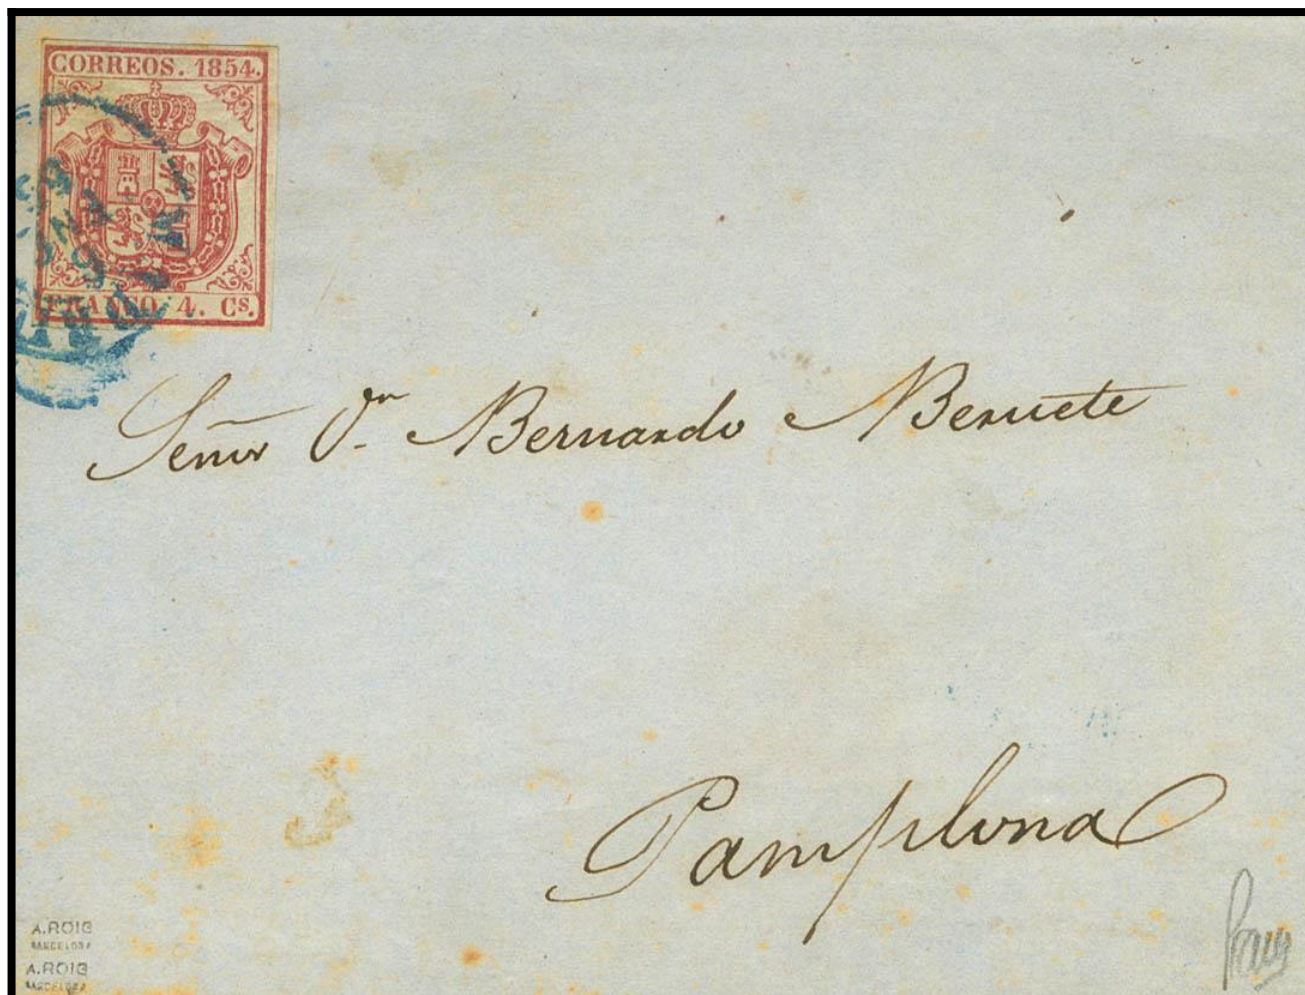 CORREOS. 1854.
FRANCO. 4. Cs.
Señor Dn Bernardo Beruete
Pamplona
A.ROIG
BARCELONA
A.ROIG
BARCELONA